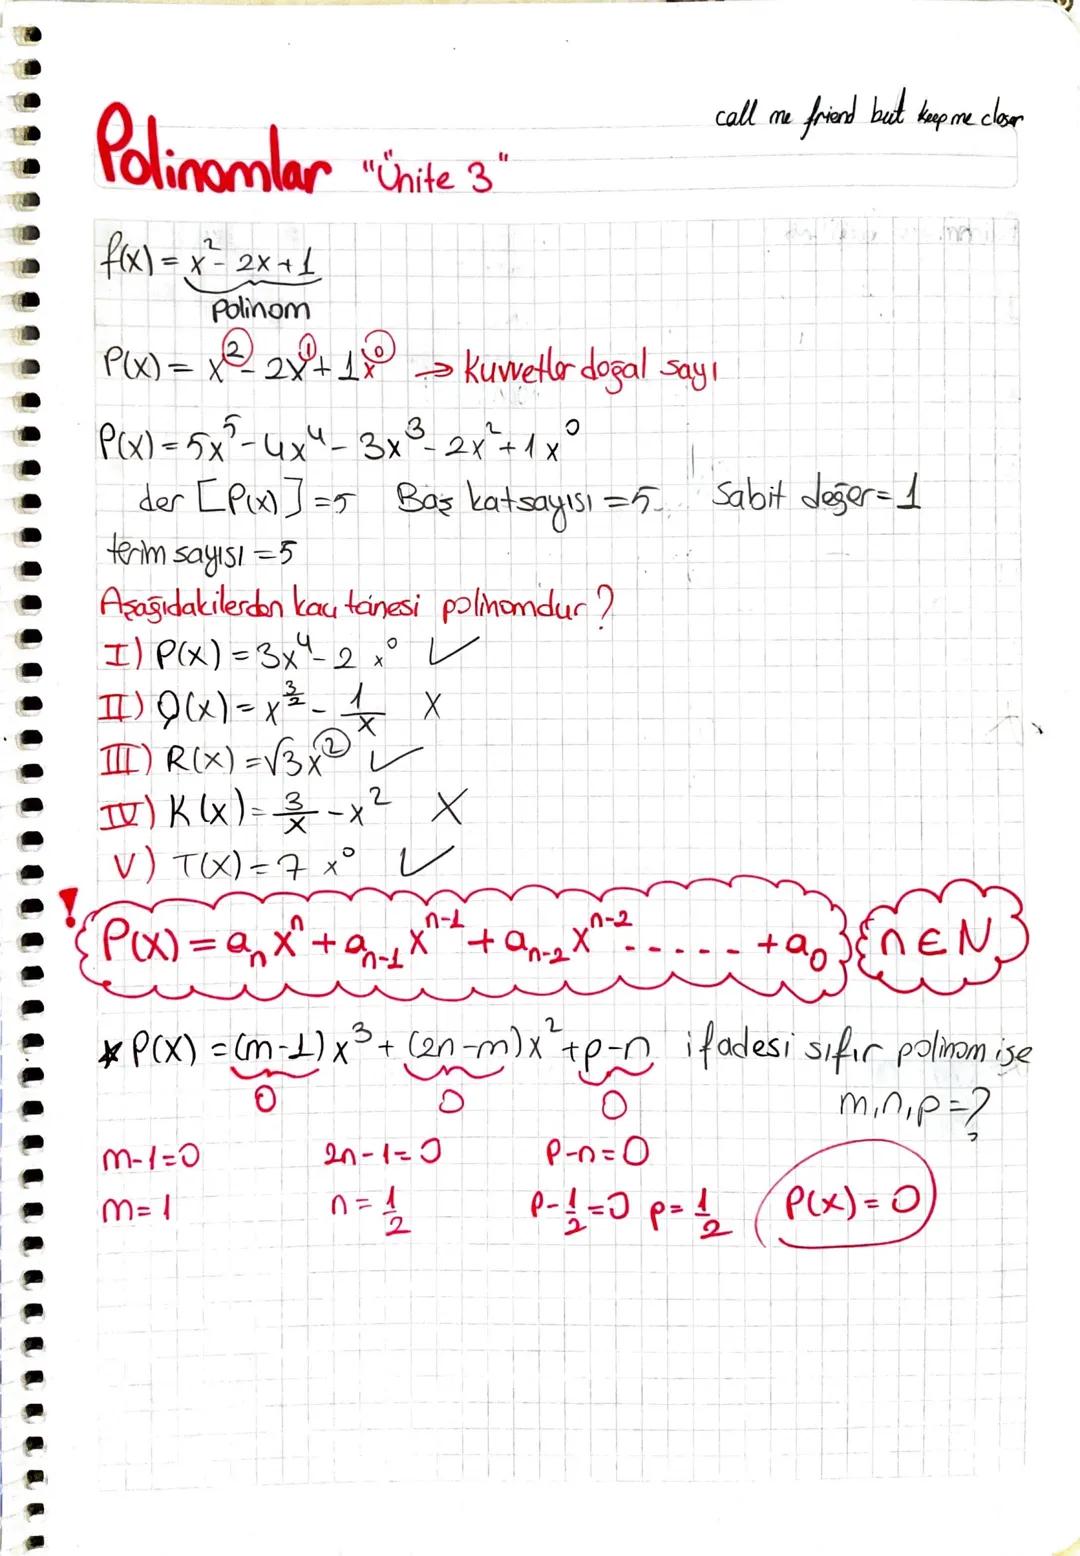 call me friend but keep me closer
Polinomlar "Ünite 3"
f(x) = x² - 2x + 1
Polinom
P(x) = x² - 2x¹ + 1x⁰ → Kuvvetler doğal sayı
P(x) = 5x⁵ - 4x⁴ - 3x³ - 2x² + 1x⁰
der [P(x)] = 5 Baş katsayısı = 5 Sabit değer = 1
terim sayısı = 5
Aşağıdakilerden kaç tanesi polinomdur?
I) P(x) = 3x⁴ - 2x⁰ ✓
II) Q(x) = x^(3/2) - 1/x X
III) R(x) = √3x² ✓
IV) K(x) = 3/x - x² X
V) T(x) = 7x⁰ ✓
! P(x) = aₙxⁿ + aₙ₋₁xⁿ⁻¹ + aₙ₋₂xⁿ⁻² ..... + a₀ n ∈ N
* P(x) = (m-1)x³ + (2n-m)x² + p-n ifadesi sıfır polinom ise
0 0 0 m,n,p = ?
m-1=0 2n-1=0 p-n=0
m=1 n=1/2 p-1/2=0 p=1/2 P(x)=0